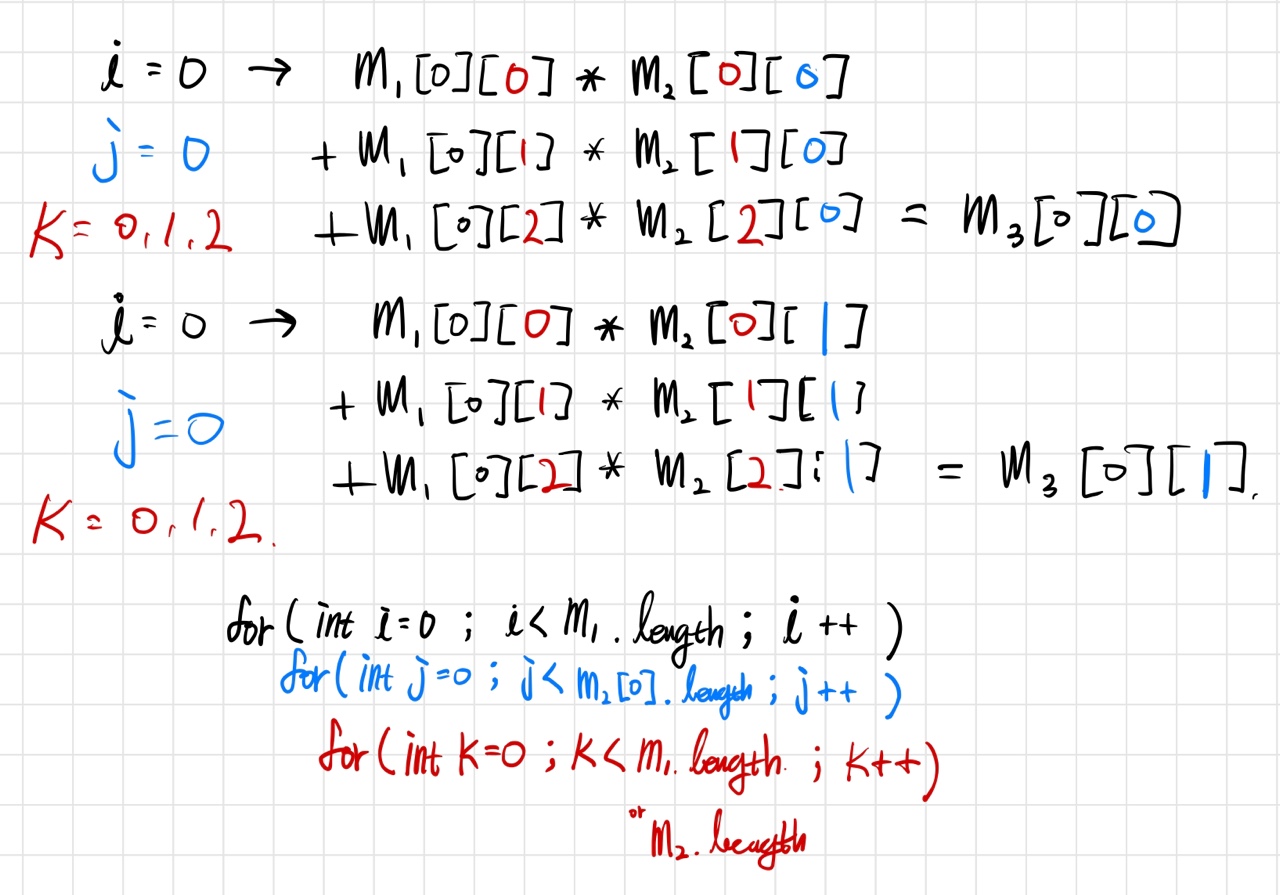 i = 0 → m₁[0][0] * m₂[0][0]
j = 0 + m₁[0][1] * m₂[1][0]
K = 0,1,2 + m₁[0][2] * m₂[2][0] = m₃[0][0]
i = 0 → m₁[0][0] * m₂[0][1]
+ m₁[0][1] * m₂[1][1]
j = 0
+ m₁[0][2] * m₂[2][1] = m₃[0][1].
K = 0,1,2.
for (int i=0 ; i < m₁.length ; i++ )
for (int j=0 ; j < m₂[0].length ; j++ )
for (int K=0 ; K < m₁.length. ; K++)
or
m₂.length